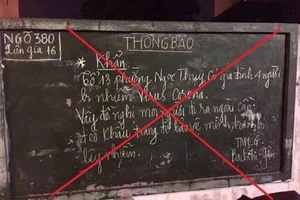 NGÕ 380
Dân gia 16
THÔNG BÁO
* Khẩn
Tổ 13 phường Ngọc Thụy Có gia đình 4 người
bị nhiễm Virus Corona.
Vậy đề nghị mọi người đi ra ngoài cần
đeo khẩu trang tự bảo vệ mình, tránh
lây nhiễm.